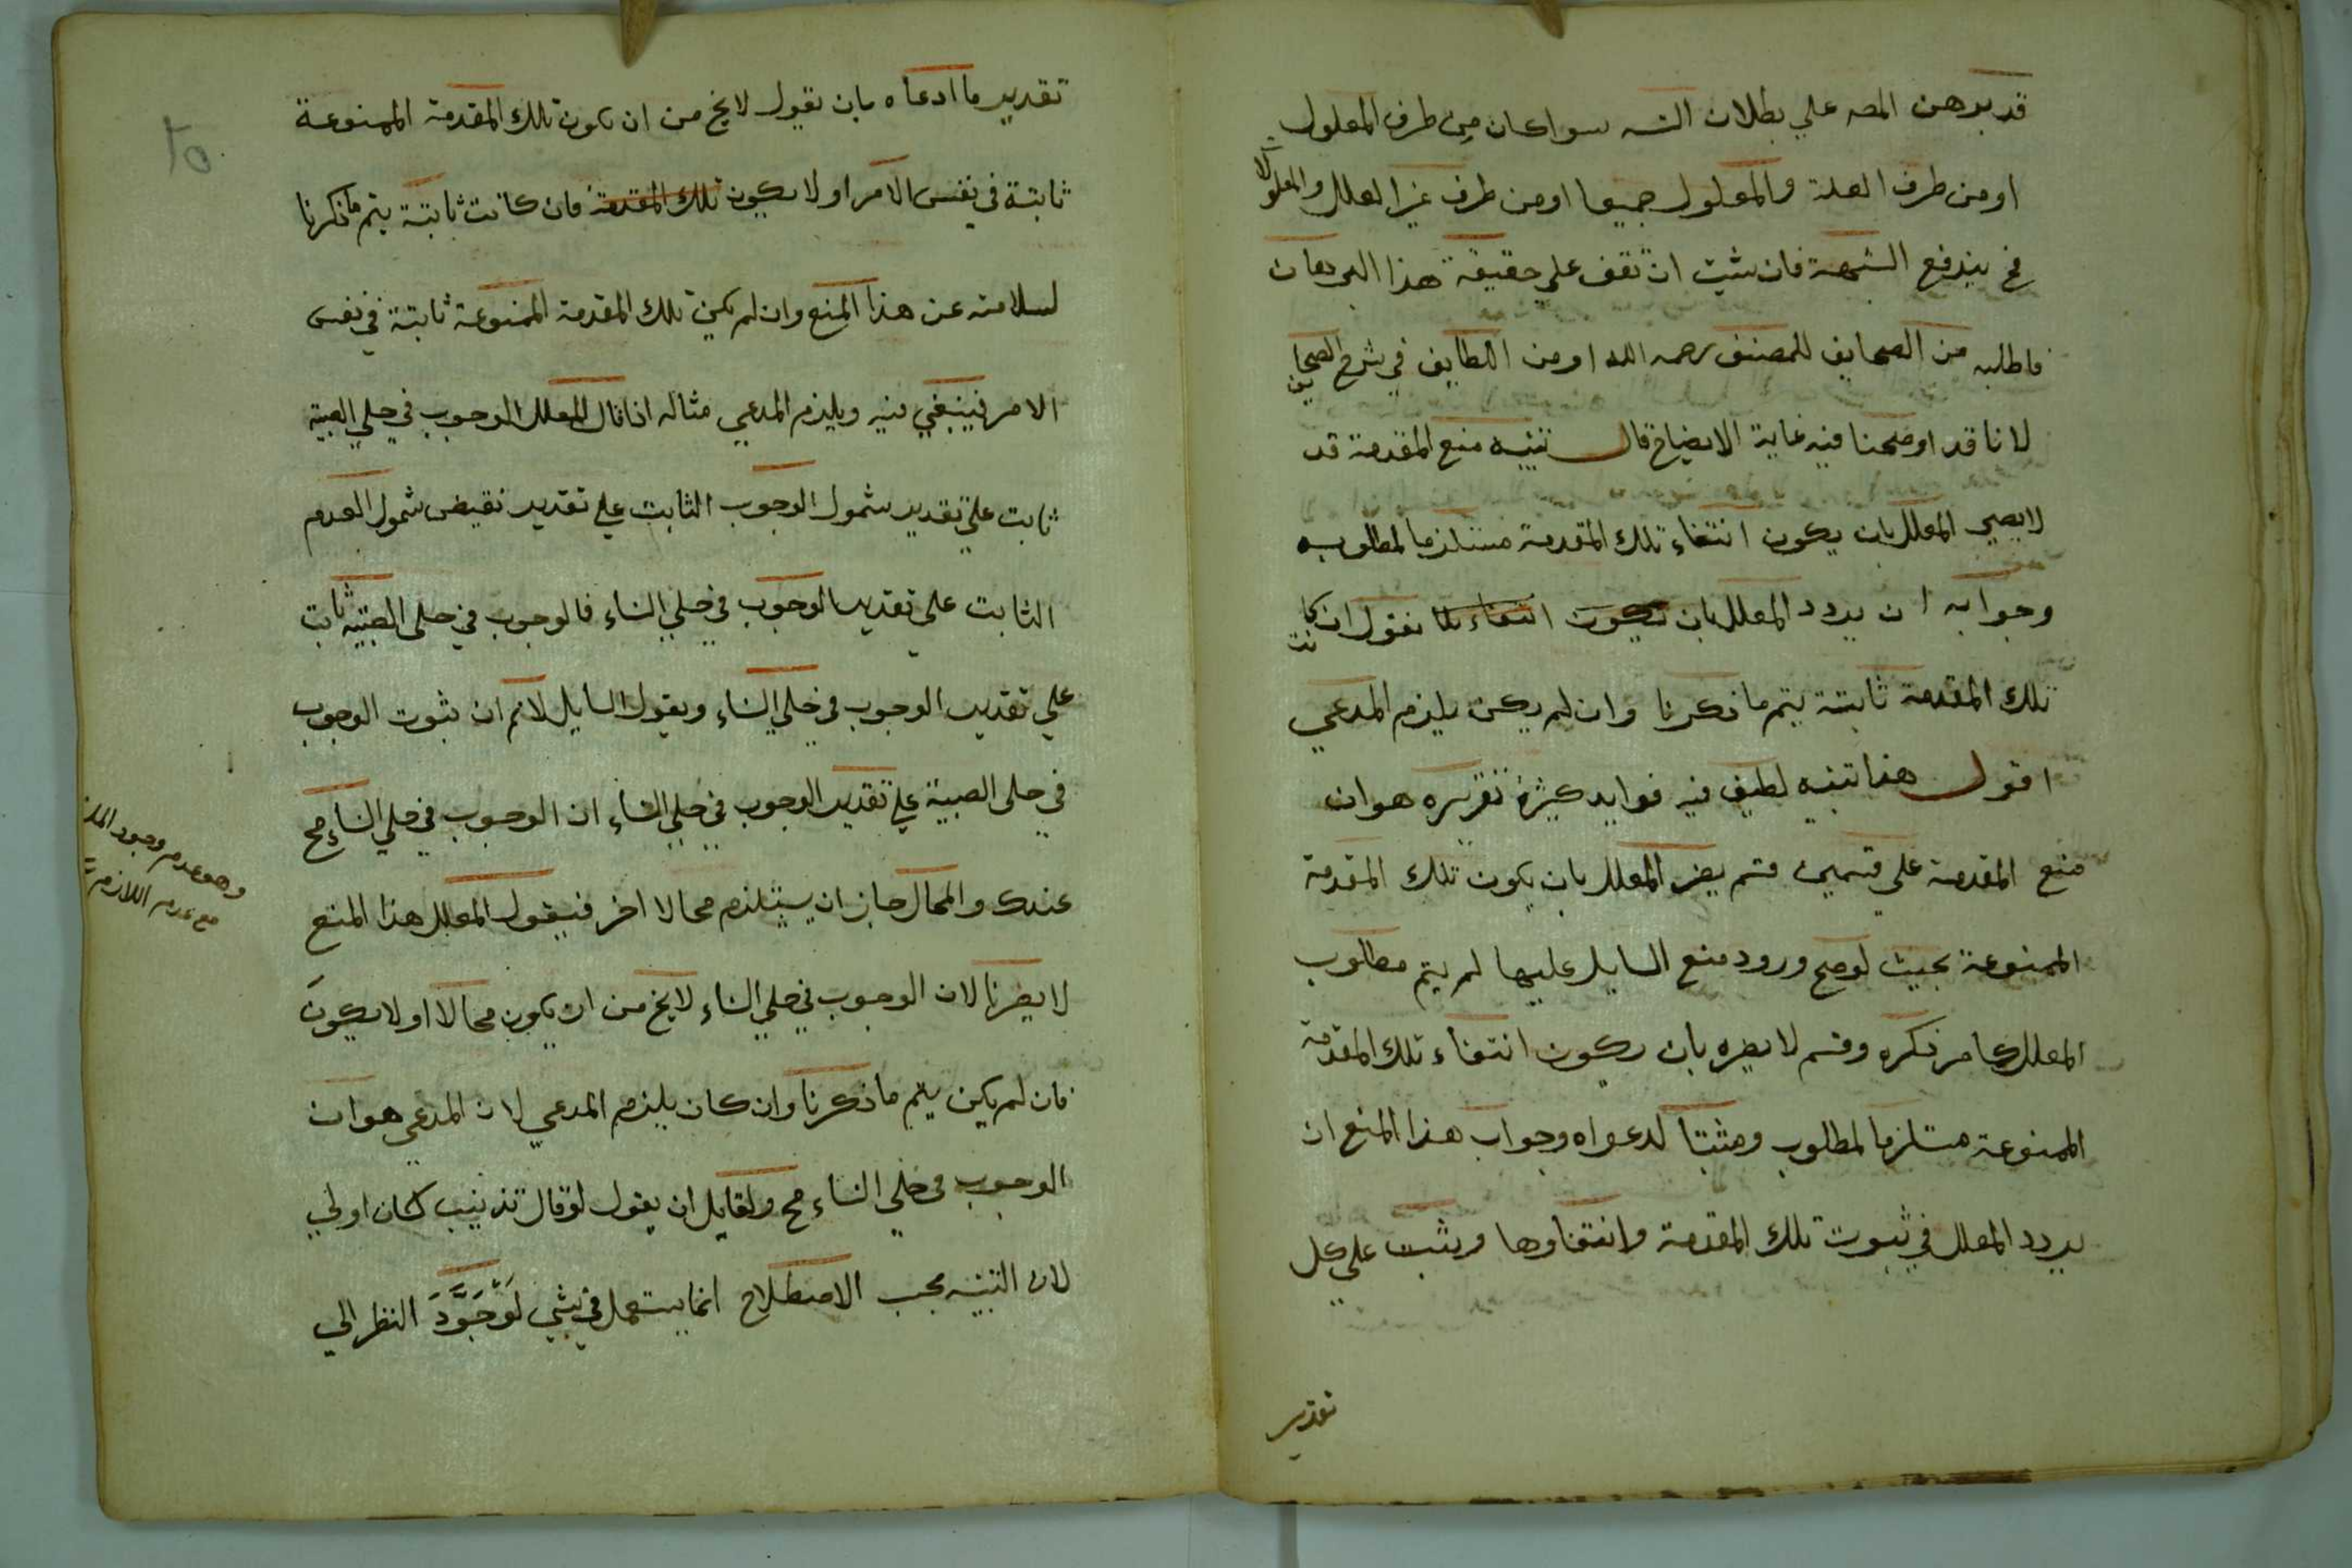 قد برهن المصه علي بطلان التسه سوا كان من طرف المعلول
او من طرف العلة والمعلول جميعا او من طرف غير العلل والمعلولا
فح يندفع الشبهة فان شيت ان تقف علي حقيقة هذا البرهان
فاطلبه من الصحايف للمصنف رحمه الله او من اللطايف في شرح الصحايف
لانا قد اوضحنا فيه غاية الايضاح قال تنبيه منع المقدمة قد
لا يضر المعلل بان يكون انتفاء تلك المقدمة مستلزما لمطلوبه
وجوابه ان يردد المعلل بان يكون انتفاء تلا نقول ان كانت
تلك المقدمة ثابتة يتم ما ذكرنا وان لم يكن يلزم المدعي
اقول هذا تنبيه لطيف فيه فوايد كثيرة تقريره هو ان
منع المقدمة علي قسمين قسم يضر المعلل بان يكون تلك المقدمة
الممنوعة بحيث لو صح ورود منع السايل عليها لم يتم مطلوب
المعلل كما مر ذكره وقسم لا يضره بان يكون انتفاء تلك المقدمة
الممنوعة مستلزما لمطلوب ومثبتا لدعواه وجواب هذا المنع ان
يردد المعلل في ثبوت تلك المقدمة وانتفاوها ويثبت علي كل
تقدير
تقدير ما ادعاه بان يقول لا يخ من ان يكون تلك المقدمة الممنوعة
ثابتة في نفس الامر او لا يكون تلك المقدمة فان كانت ثابتة يتم ما ذكرنا
لسلامته عن هذا المنع وان لم يكن تلك المقدمة الممنوعة ثابتة في نفس
الامر فينبغي فيه ويلزم المدعي مثاله اذا قال المعلل الوجوب في حلي الصبية
ثابت علي تقدير شمول الوجوب الثابت علي تقدير نقيض شمول العدم
الثابت علي تقدير الوجوب في حلي النساء فالوجوب في حلي الصبية ثابت
علي تقدير الوجوب في حلي النساء ويقول السايل لا نم ان ثبوت الوجوب
في حلي الصبية علي تقدير الوجوب في حلي النساء اذ الوجوب في حلي النساء مح
عندك والمحال جاز ان يستلزم محالا اخر فيقول المعلل هذا المنع
لا يضرنا لان الوجوب في حلي النساء لا يخ من ان يكون محالا او لا يكون
فان لم يكن يتم ما ذكرنا وان كان يلزم المدعي لان المدعي هو ان
الوجوب في حلي النساء مح ولقايل ان يقول لو قال تذنيب لكان اولي
لان التنبيه بحسب الاصطلاح انما يستعمل في شي لو جرد النظر الي
وهو عدم وجود الملز
مع عدم اللازم